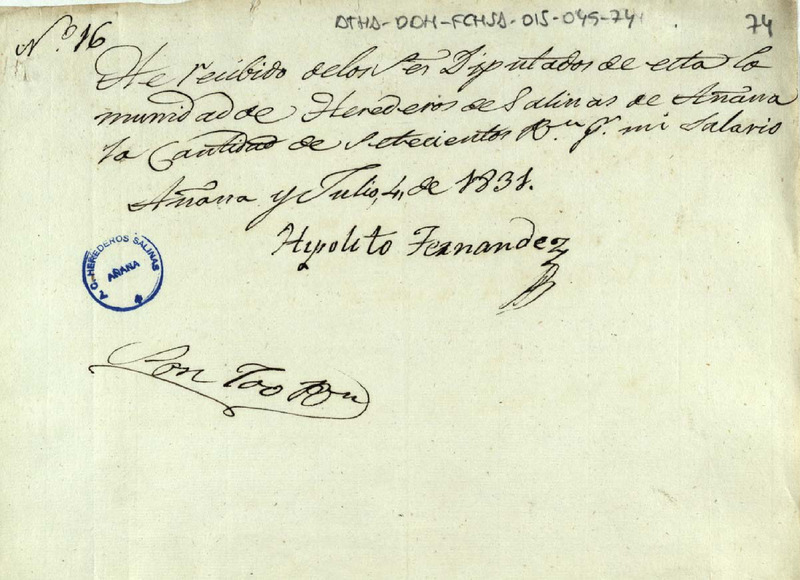 ATHA-DOH-FCHSA-015-049-74
74
N.º 16
He recibido delos S.res Diputados de esta Co
munidad de Herederos de Salinas de Añana
la Cantidad de Setecientos R.n p.r mi Salario
Añana y Julio, 4, de 1831.
Hipolito Fernandez
HEREDEROS SALINAS
AÑANA
Son 700 Rn